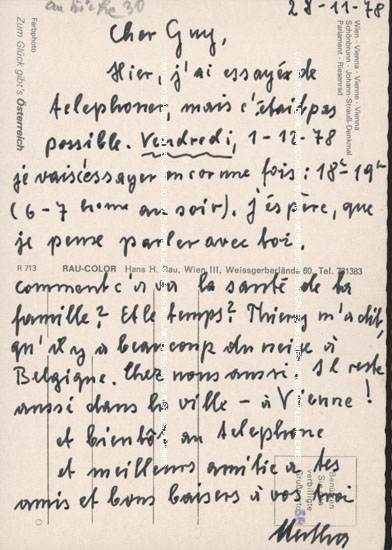 28-11-78
Cher Guy,
Hier, j'ai essayée de
telephoner, mais c'était pas
possible. Vendredi, 1-12-78
je vais essayer encor une fois: 18h-19h
(6-7 heure au soir). j'éspère, que
je peuse parler avec toi.
R 713 RAU-COLOR Hans H. Rau, Wien III, Weissgerberlände 60, Tel. 731383
comment c'a va la santé de ta
famille? Et le temps? Thierry m'a dit,
qu'il y a beaucoup du neige à
Belgique. Chez nous aussi. Il reste
aussi dans la ville - à Vienne!
et bientôt au telephone
et meilleurs amitiés à tes
amis et bons baisers à vos trois
Farbphoto
Zum Glück gibt's Österreich
Wien - Vienna - Vienne - Vienna
Schönbrunn - Johann-Strauß-Denkmal
Parlament - Riesenrad